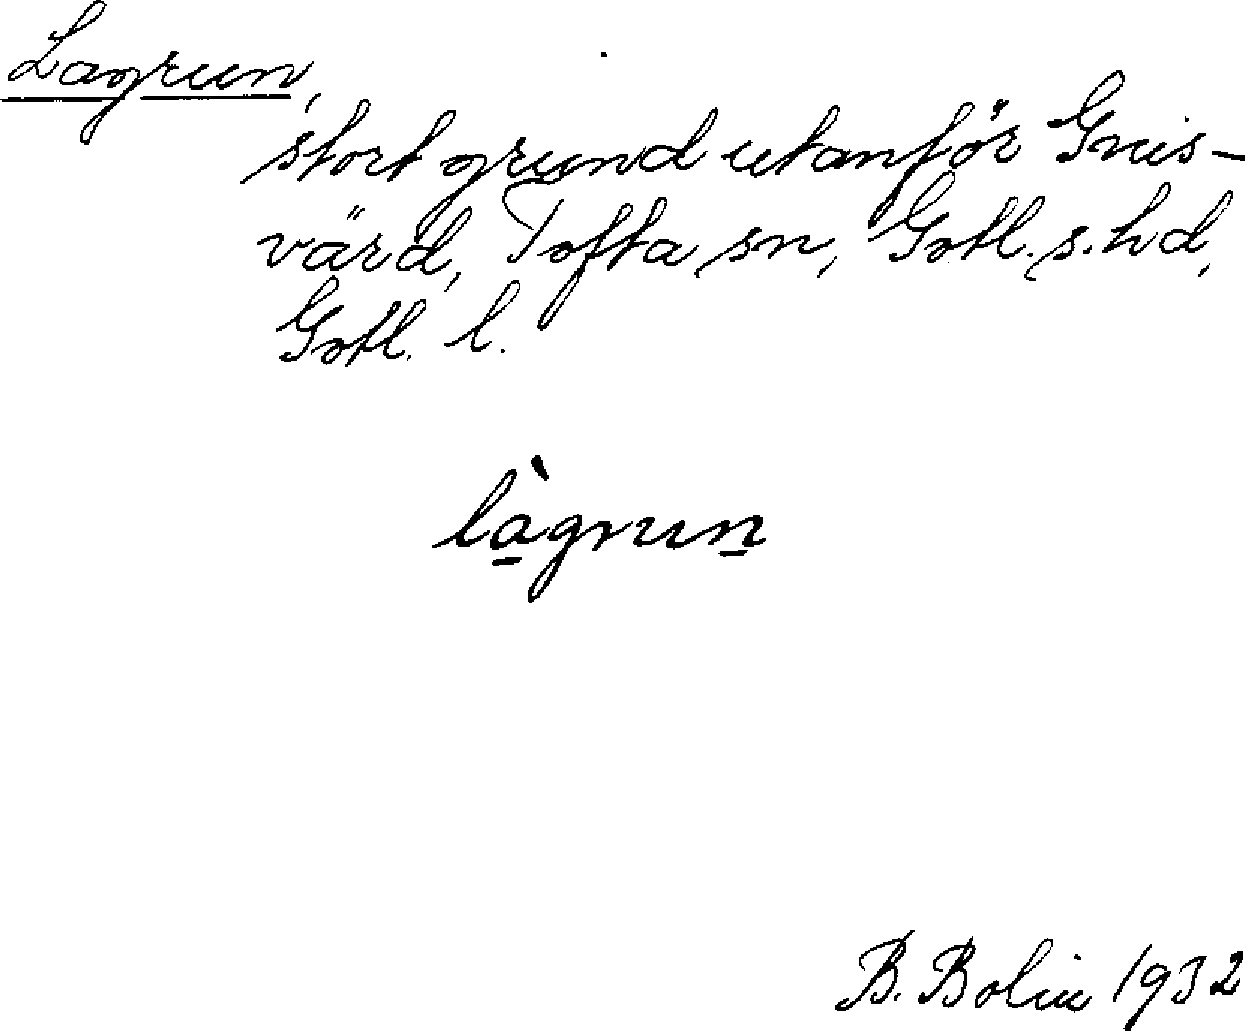 Lagrun,
stort grund utanför Gnis-
värd, Tofta sn, Gotl. s. hd,
Gotl. l.
làgrun
B. Bolin 1932